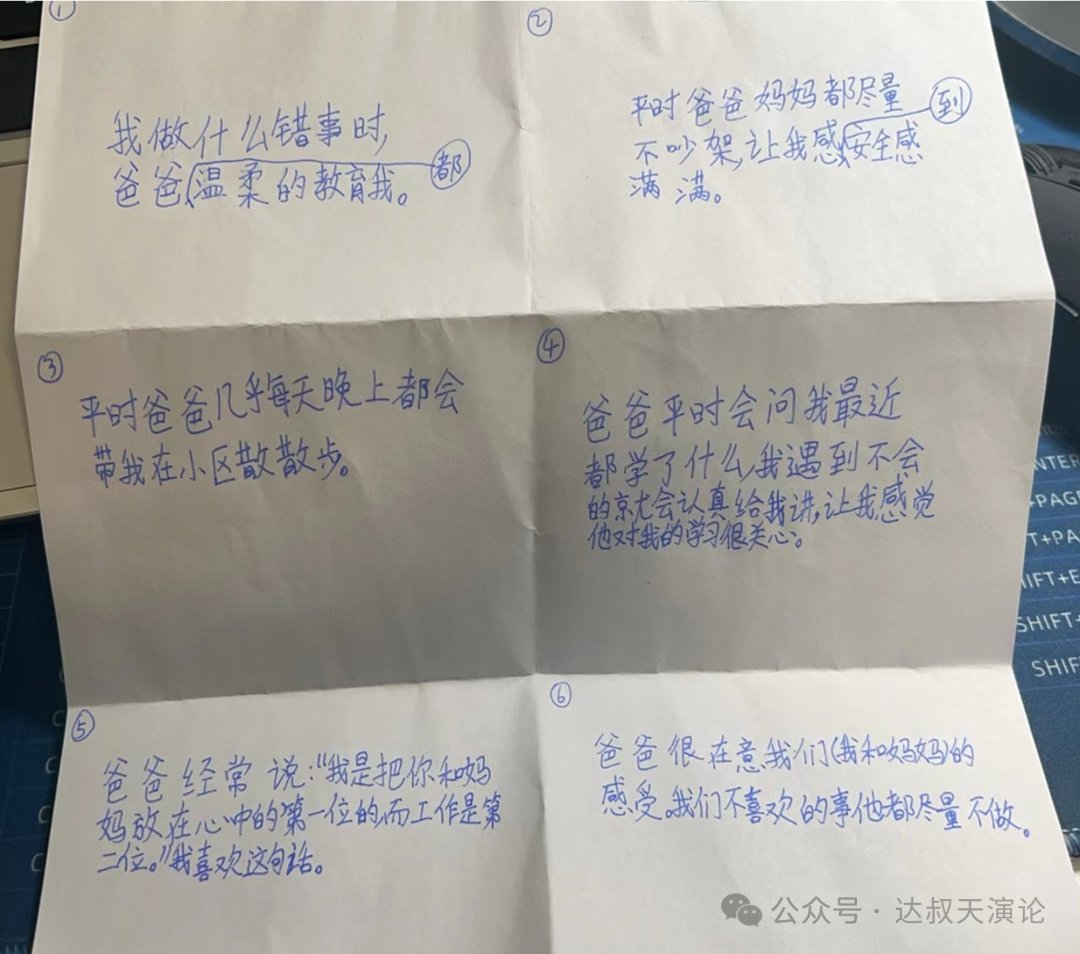 ①
我做什么错事时,
爸爸都温柔的教育我。
②
平时爸爸妈妈都尽量
不吵架,让我感到安全感
满满。
③
平时爸爸几乎每天晚上都会
带我在小区散散步。
④
爸爸平时会问我最近
都学了什么,我遇到不会
的就会认真给我讲,让我感觉
他对我的学习很关心。
⑤
爸爸经常说:“我是把你和妈
妈放在心中的第一位的,而工作是第
二位。”我喜欢这句话。
⑥
爸爸很在意我们(我和妈妈)的
感受。我们不喜欢的事他都尽量不做。
NTER
+PAG
T+PA
HIFT+E
SHIFT+
SHIF
公众号·达叔天演论